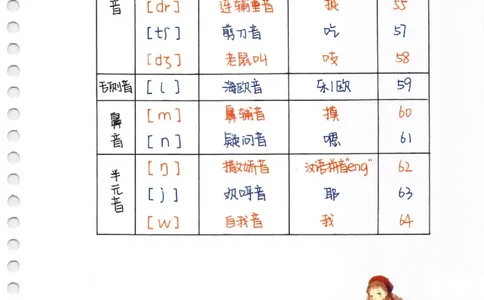 音 [dr] 连辅重音 55
[tʃ] 剪刀音 吃 57
[dʒ] 老鼠叫 吱 58
旁侧音 [l] 海欧音 乐/欧 59
鼻音 [m] 鼻辅音 摸 60
[n] 疑问音 嗯 61
半元音 [ŋ] 撒娇音 汉语拼音"eng" 62
[j] 欢呼音 耶 63
[w] 自我音 我 64